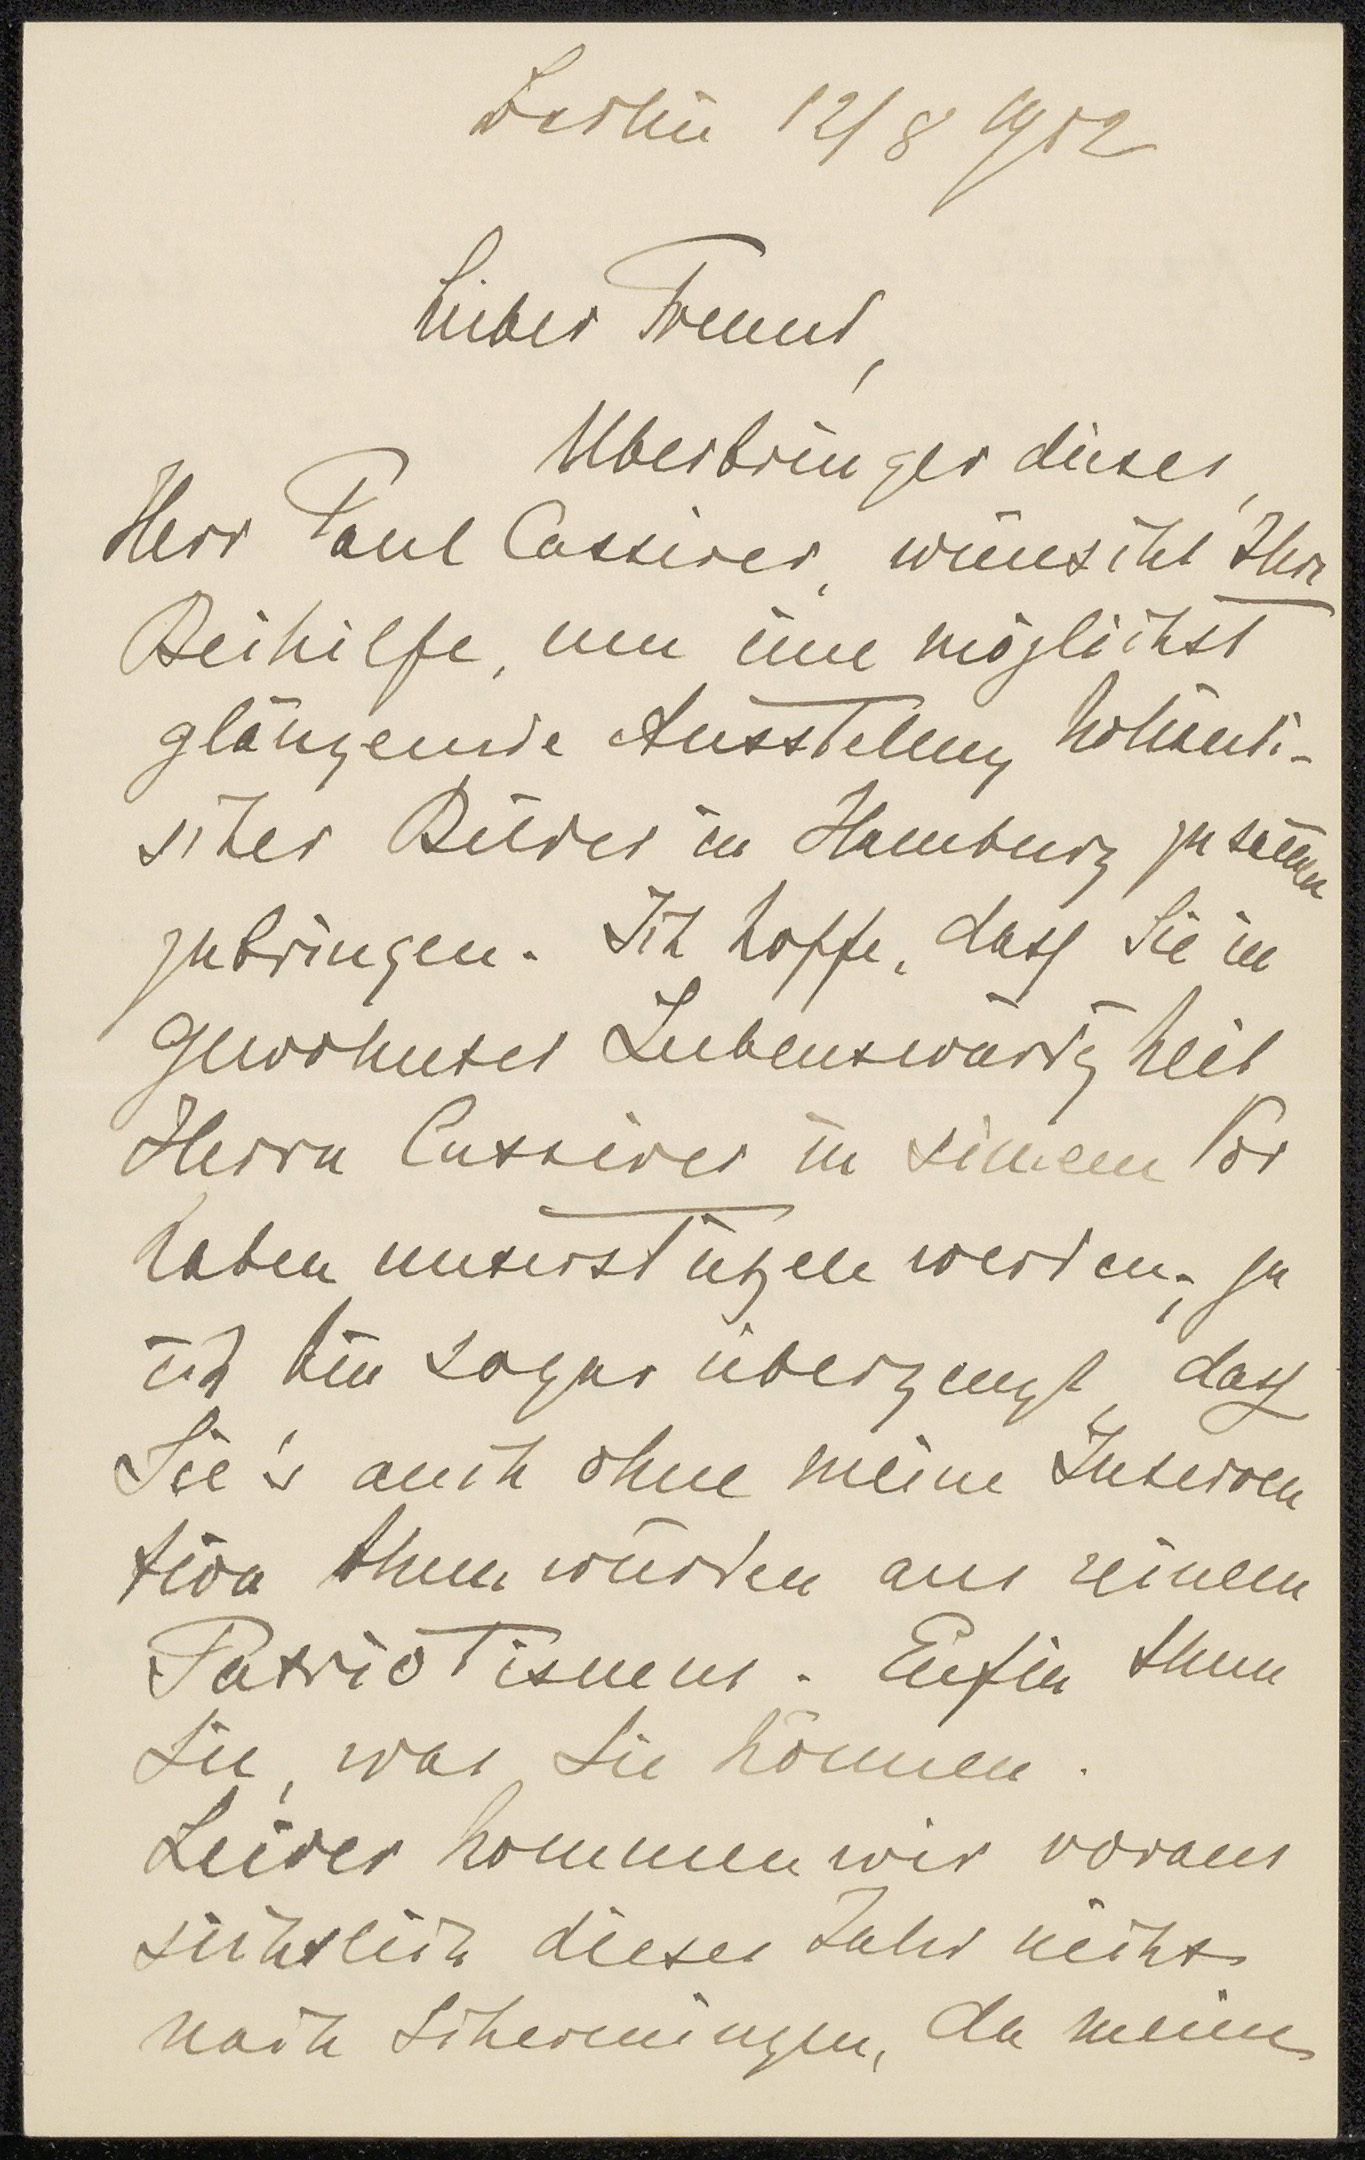 Berlin 12/8 1902
Lieber Freund,
Überbringer dieses,
Herr Paul Cassirer, wünscht Ihre
Beihilfe, um eine möglichst
glänzende Ausstellung holländi-
scher Bilder in Hamburg zusammen
zubringen. Ich hoffe, dass Sie in
gewohnter Liebenswürdigkeit
Herrn Cassirer in seinem Vor
haben unterstützen werden; ja
ich bin sogar überzeugt, dass
Sie's auch ohne meine Interven
tion thun würden aus reinem
Patriotismus. Enfin thun
Sie, was Sie können.
Leider kommen wir voraus
sichtlich dieses Jahr nicht
nach Scheveningen, da meine